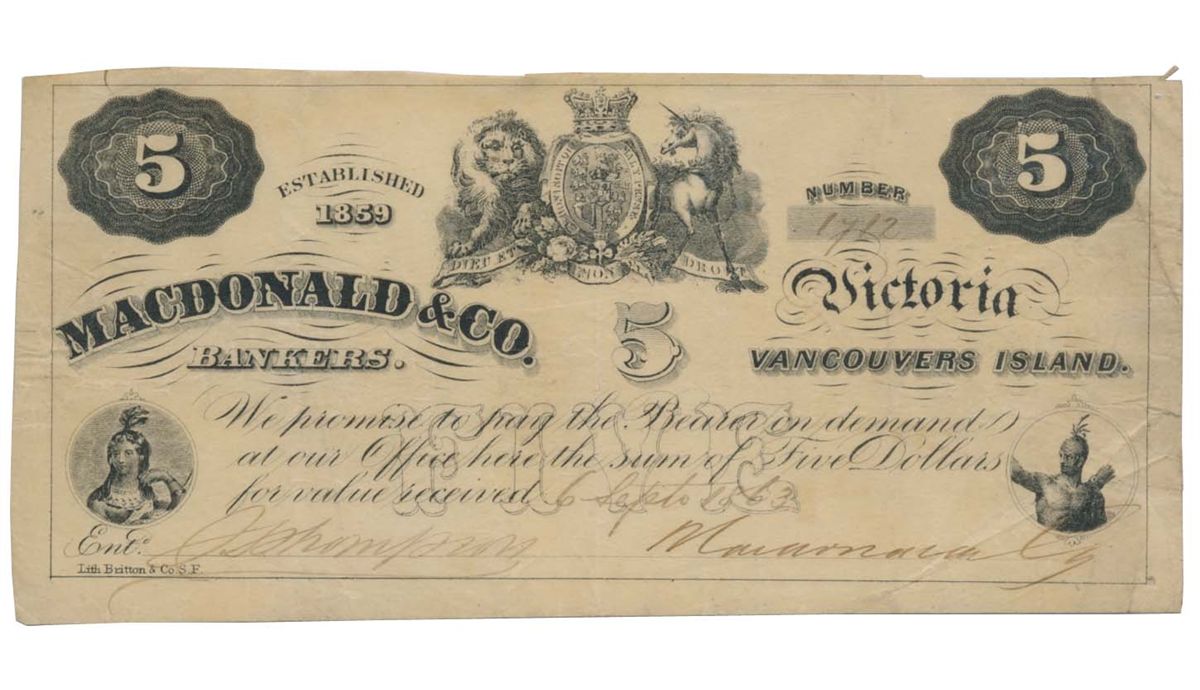 5
ESTABLISHED
1859
NUMBER
1712
5
HONI SOIT QUI MAL Y PENSE
DIEU ET MON DROIT
MACDONALD & CO.
BANKERS.
5
Victoria
VANCOUVERS ISLAND.
FIVE
We promise to pay the Bearer on demand
at our Office here the sum of Five Dollars
for value received 6 Septr 1863
Ent.
Macdonald & Co
Lith Britton & Co S.F.